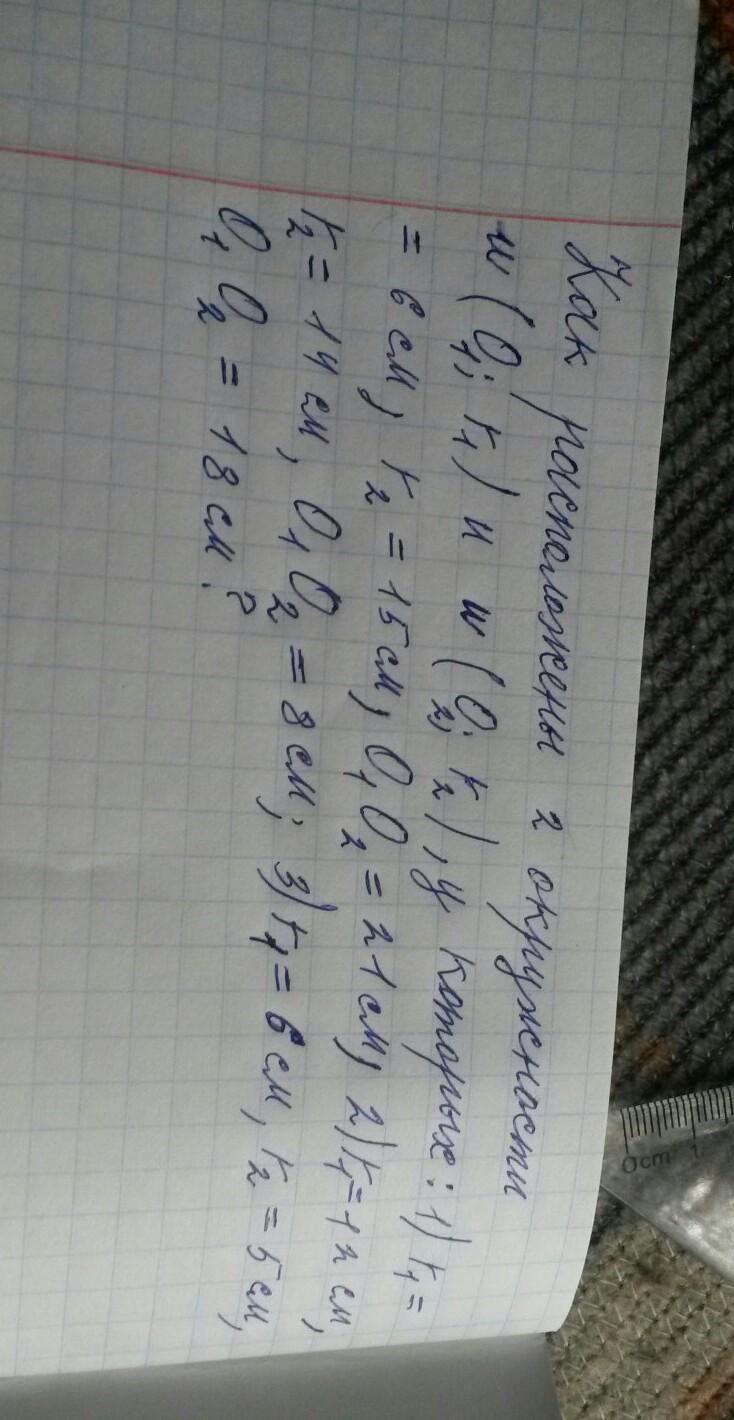 Как расположены 2 окружности
w (O₁; r₁) и w (O₂; r₂), у которых: 1) r₁ =
= 6 см, r₂ = 15 см, O₁O₂ = 21 см, 2) r₁ = 12 см,
r₂ = 14 см, O₁O₂ = 8 см; 3) r₁ = 6 см, r₂ = 5 см,
O₁O₂ = 18 см?
0cm 1